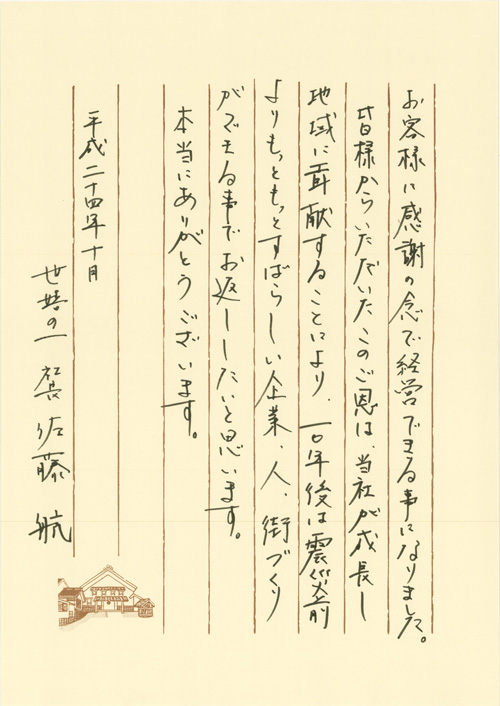 お客様に感謝の念で経営できる事になりました。
皆様からいただいたこのご恩は、当社が成長し
地域に貢献することにより、一〇年後は震災前
よりもっともっとすばらしい企業、人、街づくり
ができる事でお返ししたいと思います。
本当にありがとうございます。
平成二十四年十月
世嬉の一 社長 佐藤 航